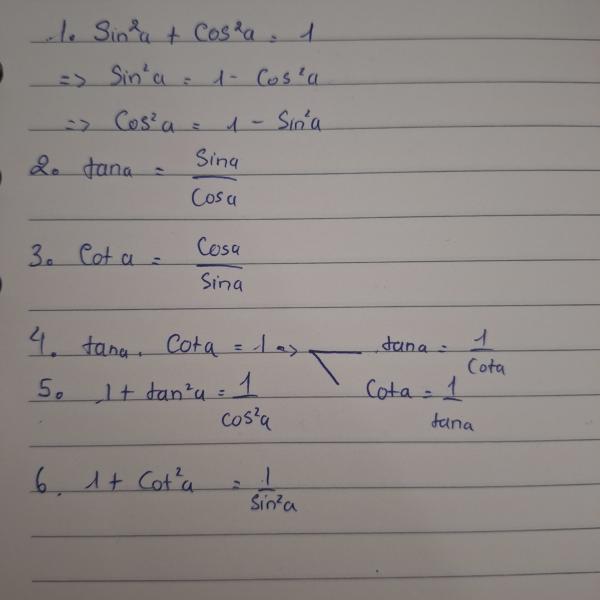 1. Sin²a + Cos²a = 1
=> Sin²a = 1 - Cos²a
=> Cos²a = 1 - Sin²a
2. tana = Sina / Cosa
3. Cot a = Cosa / Sina
4. tana . Cota = 1 => tana = 1 / Cota
Cota = 1 / tana
5. 1 + tan²a = 1 / cos²a
6. 1 + Cot²a = 1 / Sin²a